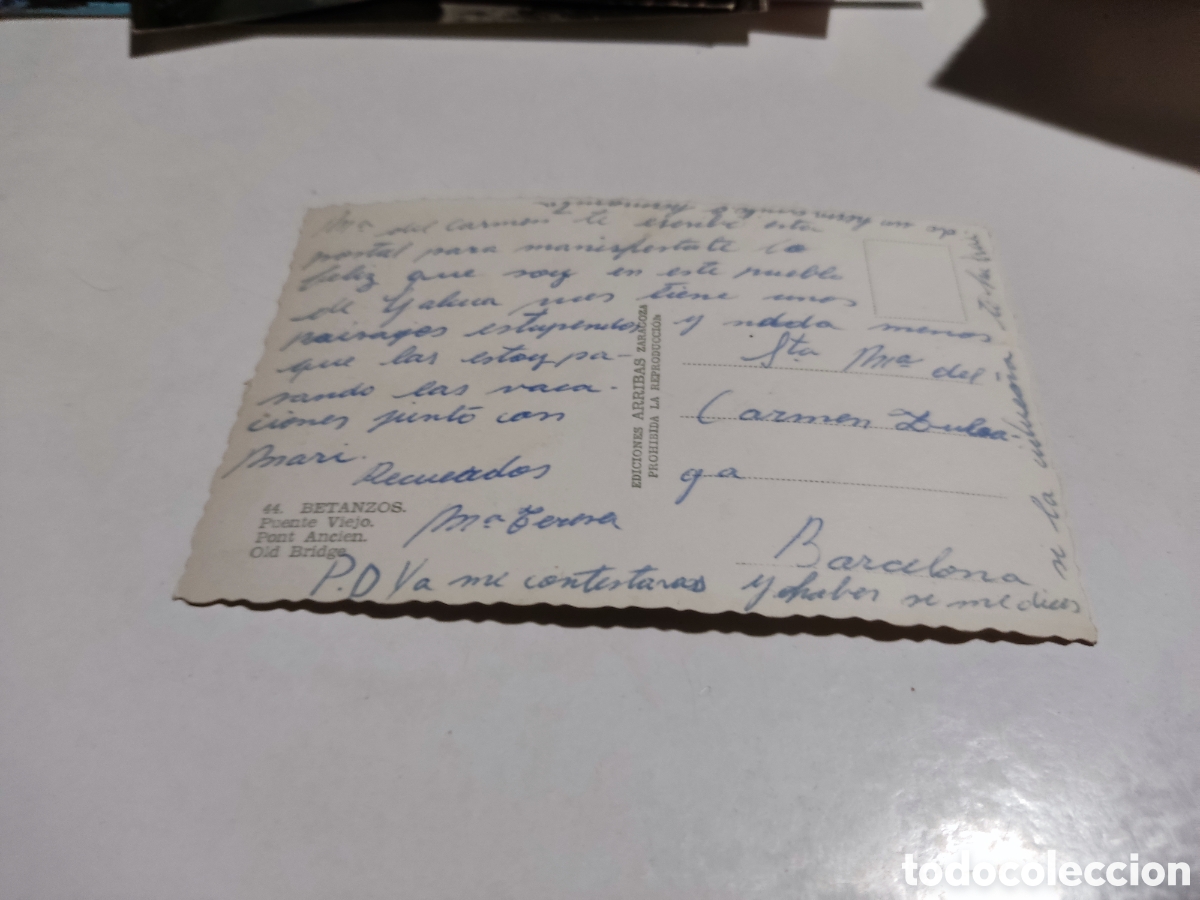 Mª del Carmen te escribi esta
postal para manifestate lo
feliz que soy en este pueblo
de pues tiene unos
paisages estupendos y nada menos
que las estoy pa-
sando las vaca-
ciones junto con
Mari.
Recuerdos
Mª Teresa
P.D Ya me contestaras y haber si me dices
si la
de un hermanito o hermanita
Sta Mª del
Carmen Zuloa-
ga
Barcelona
44. BETANZOS.
Puente Viejo.
Pont Ancien.
Old Bridge.
EDICIONES ARRIBAS ZARAGOZA
PROHIBIDA LA REPRODUCCIÓN
todocoleccion